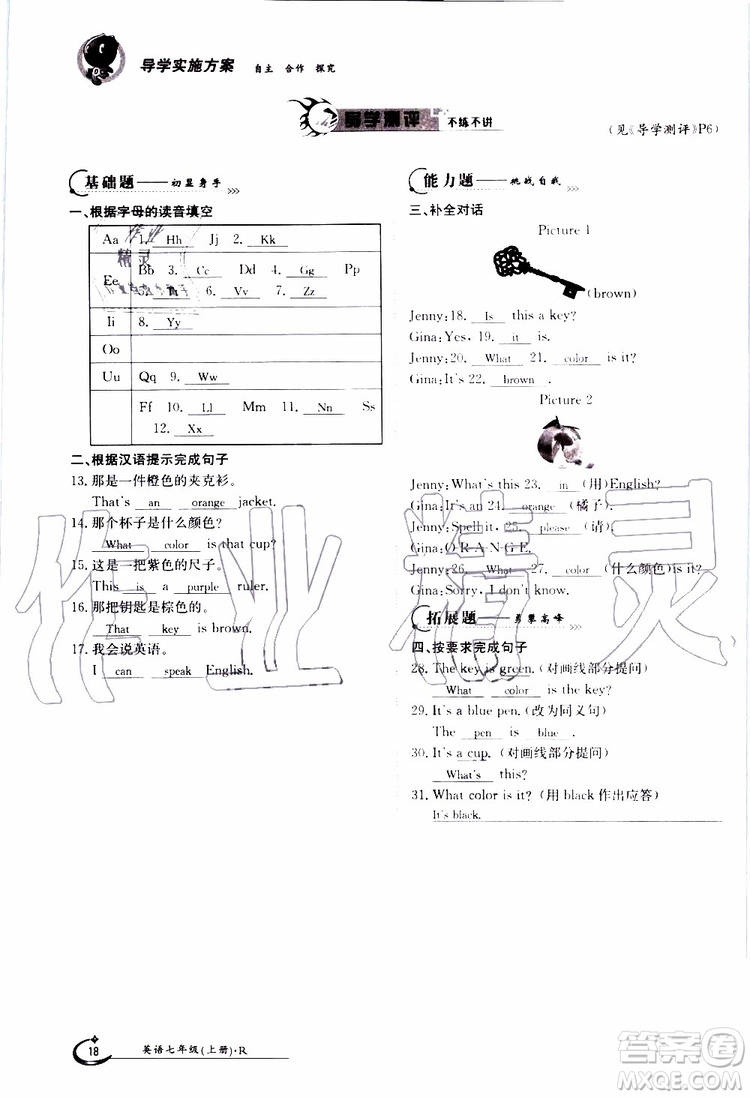 导学实施方案 自主 合作 探究
导学测评 不练不讲
(见《导学测评》P6)
基础题——初显身手
一、根据字母的读音填空
Aa 1. Hh Jj 2. Kk
Ee Bb 3. Cc Dd 4. Gg Pp
5. Tt 6. Vv 7. Zz
Ii 8. Yy
Oo
Uu Qq 9. Ww
Ff 10. Ll Mm 11. Nn Ss
12. Xx
二、根据汉语提示完成句子
13. 那是一件橙色的夹克衫。
That's an orange jacket.
14. 那个杯子是什么颜色?
What color is that cup?
15. 这是一把紫色的尺子。
This is a purple ruler.
16. 那把钥匙是棕色的。
That key is brown.
17. 我会说英语。
I can speak English.
能力题——挑战自我
三、补全对话
Picture 1
(brown)
Jenny:18. Is this a key?
Gina:Yes, 19. it is.
Jenny:20. What 21. color is it?
Gina:It's 22. brown .
Picture 2
Jenny:What's this 23. in (用)English?
Gina:It's an 24. orange (橘子).
Jenny:Spell it, 25. please (请).
Gina:O-R-A-N-G-E.
Jenny:26. What 27. color (什么颜色)is it?
Gina:Sorry, I don't know.
拓展题——勇攀高峰
四、按要求完成句子
28. The key is green. (对画线部分提问)
What color is the key?
29. It's a blue pen. (改为同义句)
The pen is blue.
30. It's a cup. (对画线部分提问)
What's this?
31. What color is it? (用 black 作出应答)
It's black.
18 英语七年级(上册)·R
作业精灵
答案圈
MXQE.COM